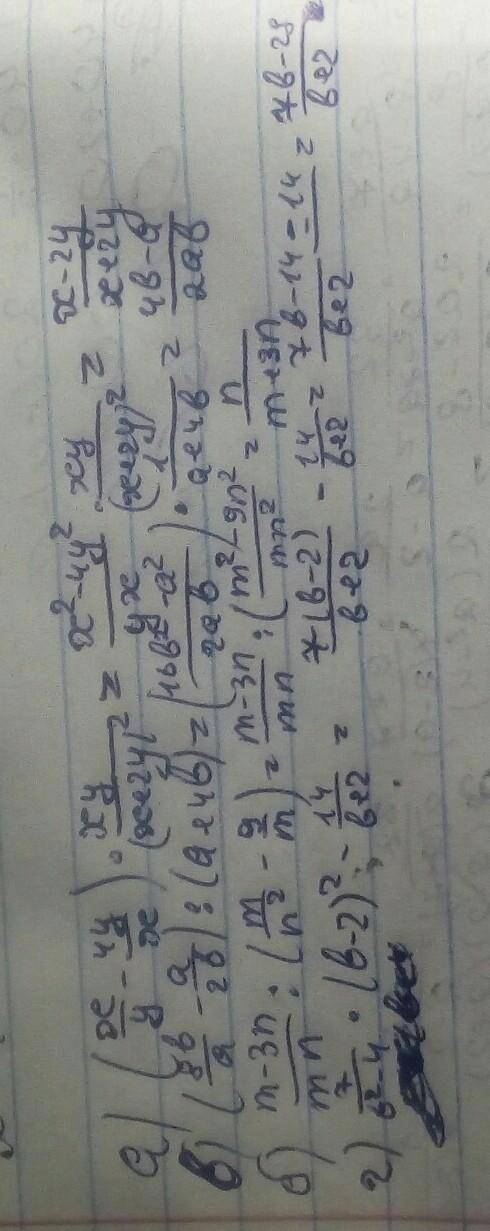 а) (x/y - 4y/x) · xy/(x+2y)² = x²-4y²/yx · xy/(x+2y)² = x-2y/x+2y
в) (8b/a - a/2b) : (a+4b) = (16b²-a²/2ab) · 1/a+4b = 4b-a/2ab
б) m-3n/mn : (m/n² - 9/m) = m-3n/mn : (m²-9n²/mn²) = n/m+3n
г) 7/b²-4 · (b-2)² - 14/b+2 = 7(b-2)/b+2 - 14/b+2 = 7b-14-14/b+2 = 7b-28/b+2